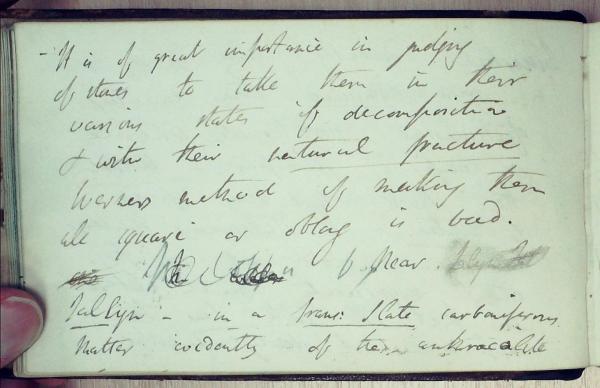 - It is of great importance in judging
of stones to take them in their
various states of decomposition
& with their natural fracture
Werners method of making them
all square or oblog is bad.
near
- in a trans: slate carboniferous
matter evidently of the